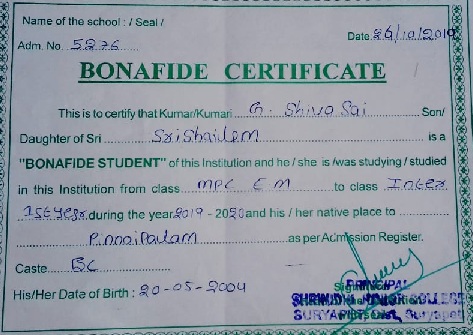 Name of the school : / Seal /
Adm. No. 5276 Date 26/10/2019
BONAFIDE CERTIFICATE
This is to certify that Kumar/Kumari G. Shiva Sai Son/
Daughter of Sri Srishailam is a
"BONAFIDE STUDENT" of this Institution and he / she is /was studying / studied
in this Institution from class MPC E M to class Inter
1st year during the year 2019 - 2020 and his / her native place to
as per Admission Register.
Caste BC
His/Her Date of Birth : 20-05-2004
PRINCIPAL
JUNIOR COLLEGE
SURYAPET Dist. Suryapet